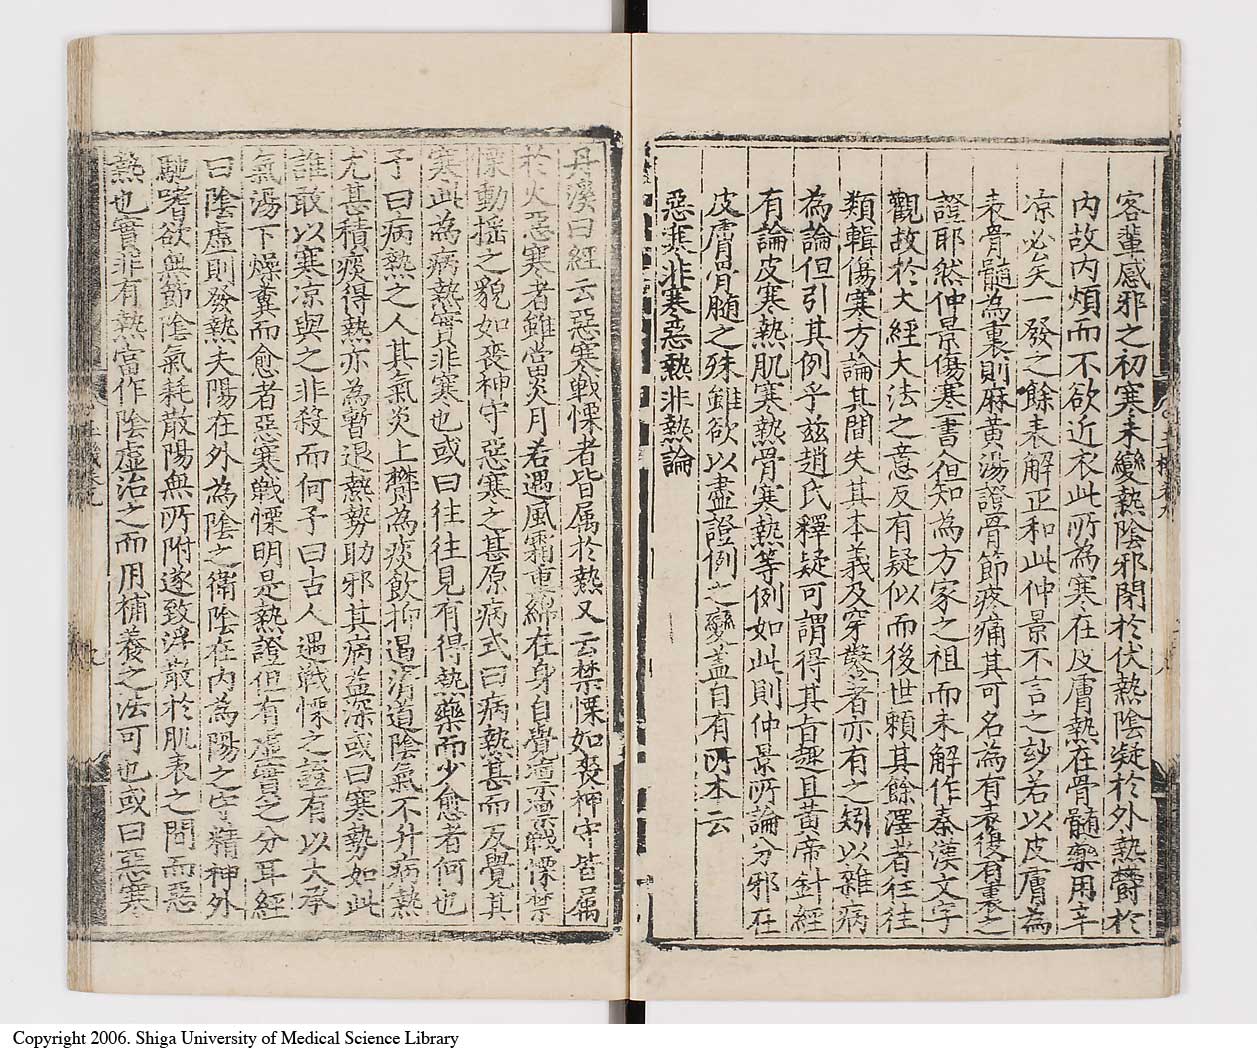 客輩感邪之初寒未變熱陰邪閉於伏熱陰凝於外熱鬱於
內故內煩而不欲近衣此所為寒在皮膚熱在骨髓藥用辛
凉必矣一發之餘表解正和此仲景不言之妙若以皮膚為
表骨髓為裏則麻黃湯證骨節疼痛其可名為有表復有裏之
證耶然仲景傷寒一書人但知為方家之祖而未解作秦漢文字
觀故於大經大法之意反有疑似而後世賴其餘澤者往往
類輯傷寒方論其間失其本義及穿鑿者亦有之矧以雜病
為論但引其例乎玆趙氏釋疑可謂得其旨趣且黃帝針經
有論皮寒熱肌寒熱骨寒熱等例如此則仲景所論分邪在
皮膚骨髓之殊雖欲以盡證例之變蓋自有所本云
惡寒非寒惡熱非熱論
丹溪曰經云惡寒戰慄者皆属於熱又云禁慄如喪神守皆属
於火惡寒者雖當炎月若遇風霜重綿在身自覺凜凜戰慄禁
慄動揺之貌如喪神守惡寒之甚原病式曰病熱甚而反覺其
寒此為病熱實非寒也或曰往往見有得熱藥而少愈者何也
予曰病熱之人其氣炎上鬱為痰飲抑遏清道陰氣不升病熱
尤甚積痰得熱亦為暫退熱勢助邪其病益深或曰寒勢如此
誰敢以寒凉與之非殺而何予曰古人遇戰慄之證有以大承
氣湯下燥糞而愈者惡寒戰慄明是熱證但有虛實之分耳經
曰陰虛則發熱夫陽在外為陰之衛陰在內為陽之守精神外
馳嗜欲無節陰氣耗散陽無所附遂致浮散於肌表之間而惡
熱也實非有熱當作陰虛治之而用補養之法可也或曰惡寒
Copyright 2006. Shiga University of Medical Science Library